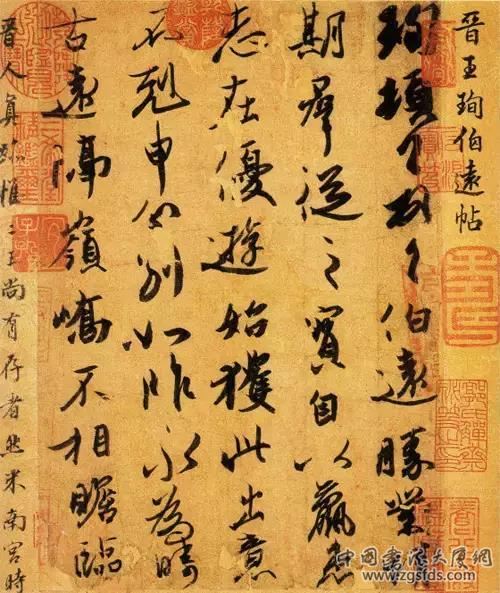 晉王珣伯遠帖
珣頓首頓首伯遠勝業情
期羣從之寶自以羸患
志在優遊始獲此出意
不剋申分別如昨永為疇
古遠隔嶺嶠不相瞻臨
晉人真跡惟二王尚有存者然米南宮時
www.zgsfds.com